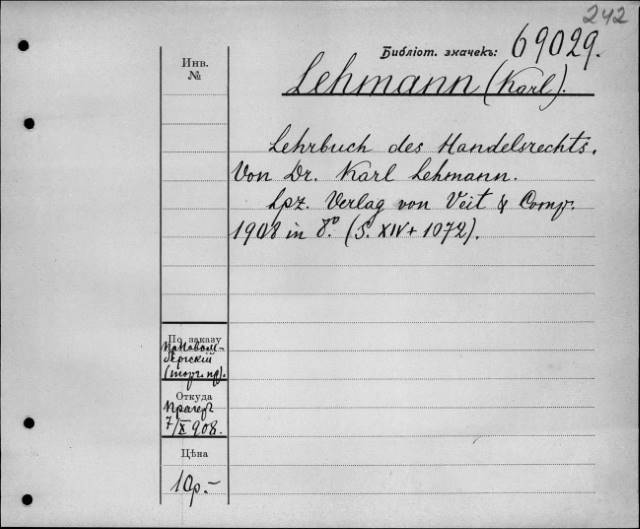 242
Библіот. значекъ: 69029.
Инв.
№
Lehmann (Karl).
Lehrbuch des Handelsrechts.
Von Dr. Karl Lehmann.
Lpz. Verlag von Veit & Comp.
1908 in 8.° (S. XIV + 1072).
По заказу
(торг. пр).
Откуда
7/X 908.
Цѣна
10р.-